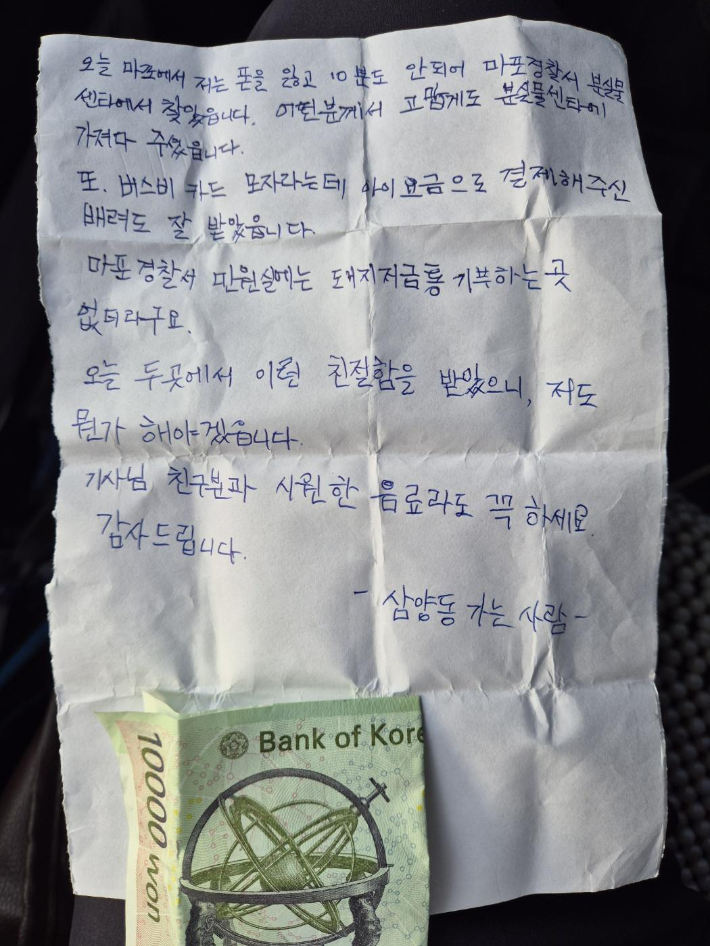 오늘 마포에서 저는 폰을 잃고 10분도 안되어 마포경찰서 분실물
센타에서 찾았읍니다. 어떤분께서 고맙게도 분실물센타에
가져다 주었읍니다.
또. 버스비 카드 모자라는데 아이요금으로 결제해주신
배려도 잘 받았읍니다.
마포경찰서 민원실에는 돼지저금통 기부하는곳
없더라구요.
오늘 두곳에서 이런 친절함을 받았으니, 저도
뭔가 해야겠읍니다.
기사님 친구분과 시원한 음료라도 꼭 하세요.
감사드립니다.
- 삼양동 가는 사람 -
Bank of Kore
10000 won